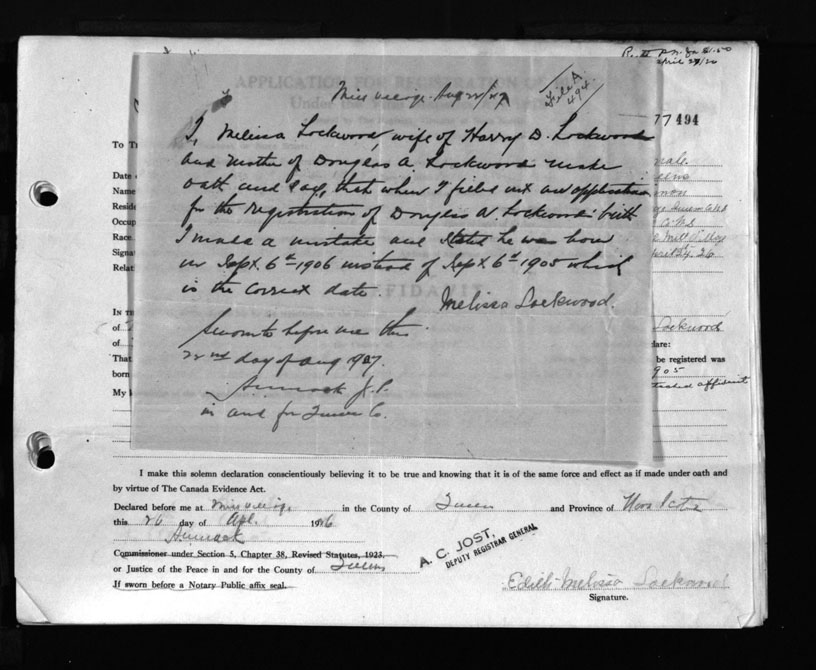 April 27/20
APPLICATION FOR REGISTRATION OF
Under
Mill Village Aug 22/27
File A.
494
77494
I, Melissa Lockwood, wife of Harry D. Lockwood
and mother of Douglas A. Lockwood make
oath and say, that when I filled out an application
for the registration of Douglas A. Lockwood birth
I made a mistake and stated he was born
on Sept. 6th 1906 instead of Sept. 6th 1905 which
is the correct date.
Melissa Lockwood.
Sworn to before me this
22nd day of Aug 1927.
J.P.
in and for Queens Co.
To T
Date
Name
Reside
Occup
Race
Signa
Relat
AFFIDAVIT
IN T
of
Lockwood
of
clare:
That
be registered was
born
905
My k
attached affidavit
I make this solemn declaration conscientiously believing it to be true and knowing that it is of the same force and effect as if made under oath and
by virtue of The Canada Evidence Act.
Declared before me at Mill Village in the County of Queens and Province of Nova Scotia
this 26 day of Apl. 1926
Commissioner under Section 5, Chapter 38, Revised Statutes, 1923.
or Justice of the Peace in and for the County of Queens
If sworn before a Notary Public affix seal.
A. C. JOST,
DEPUTY REGISTRAR GENERAL
Edith Melissa Lockwood
Signature.